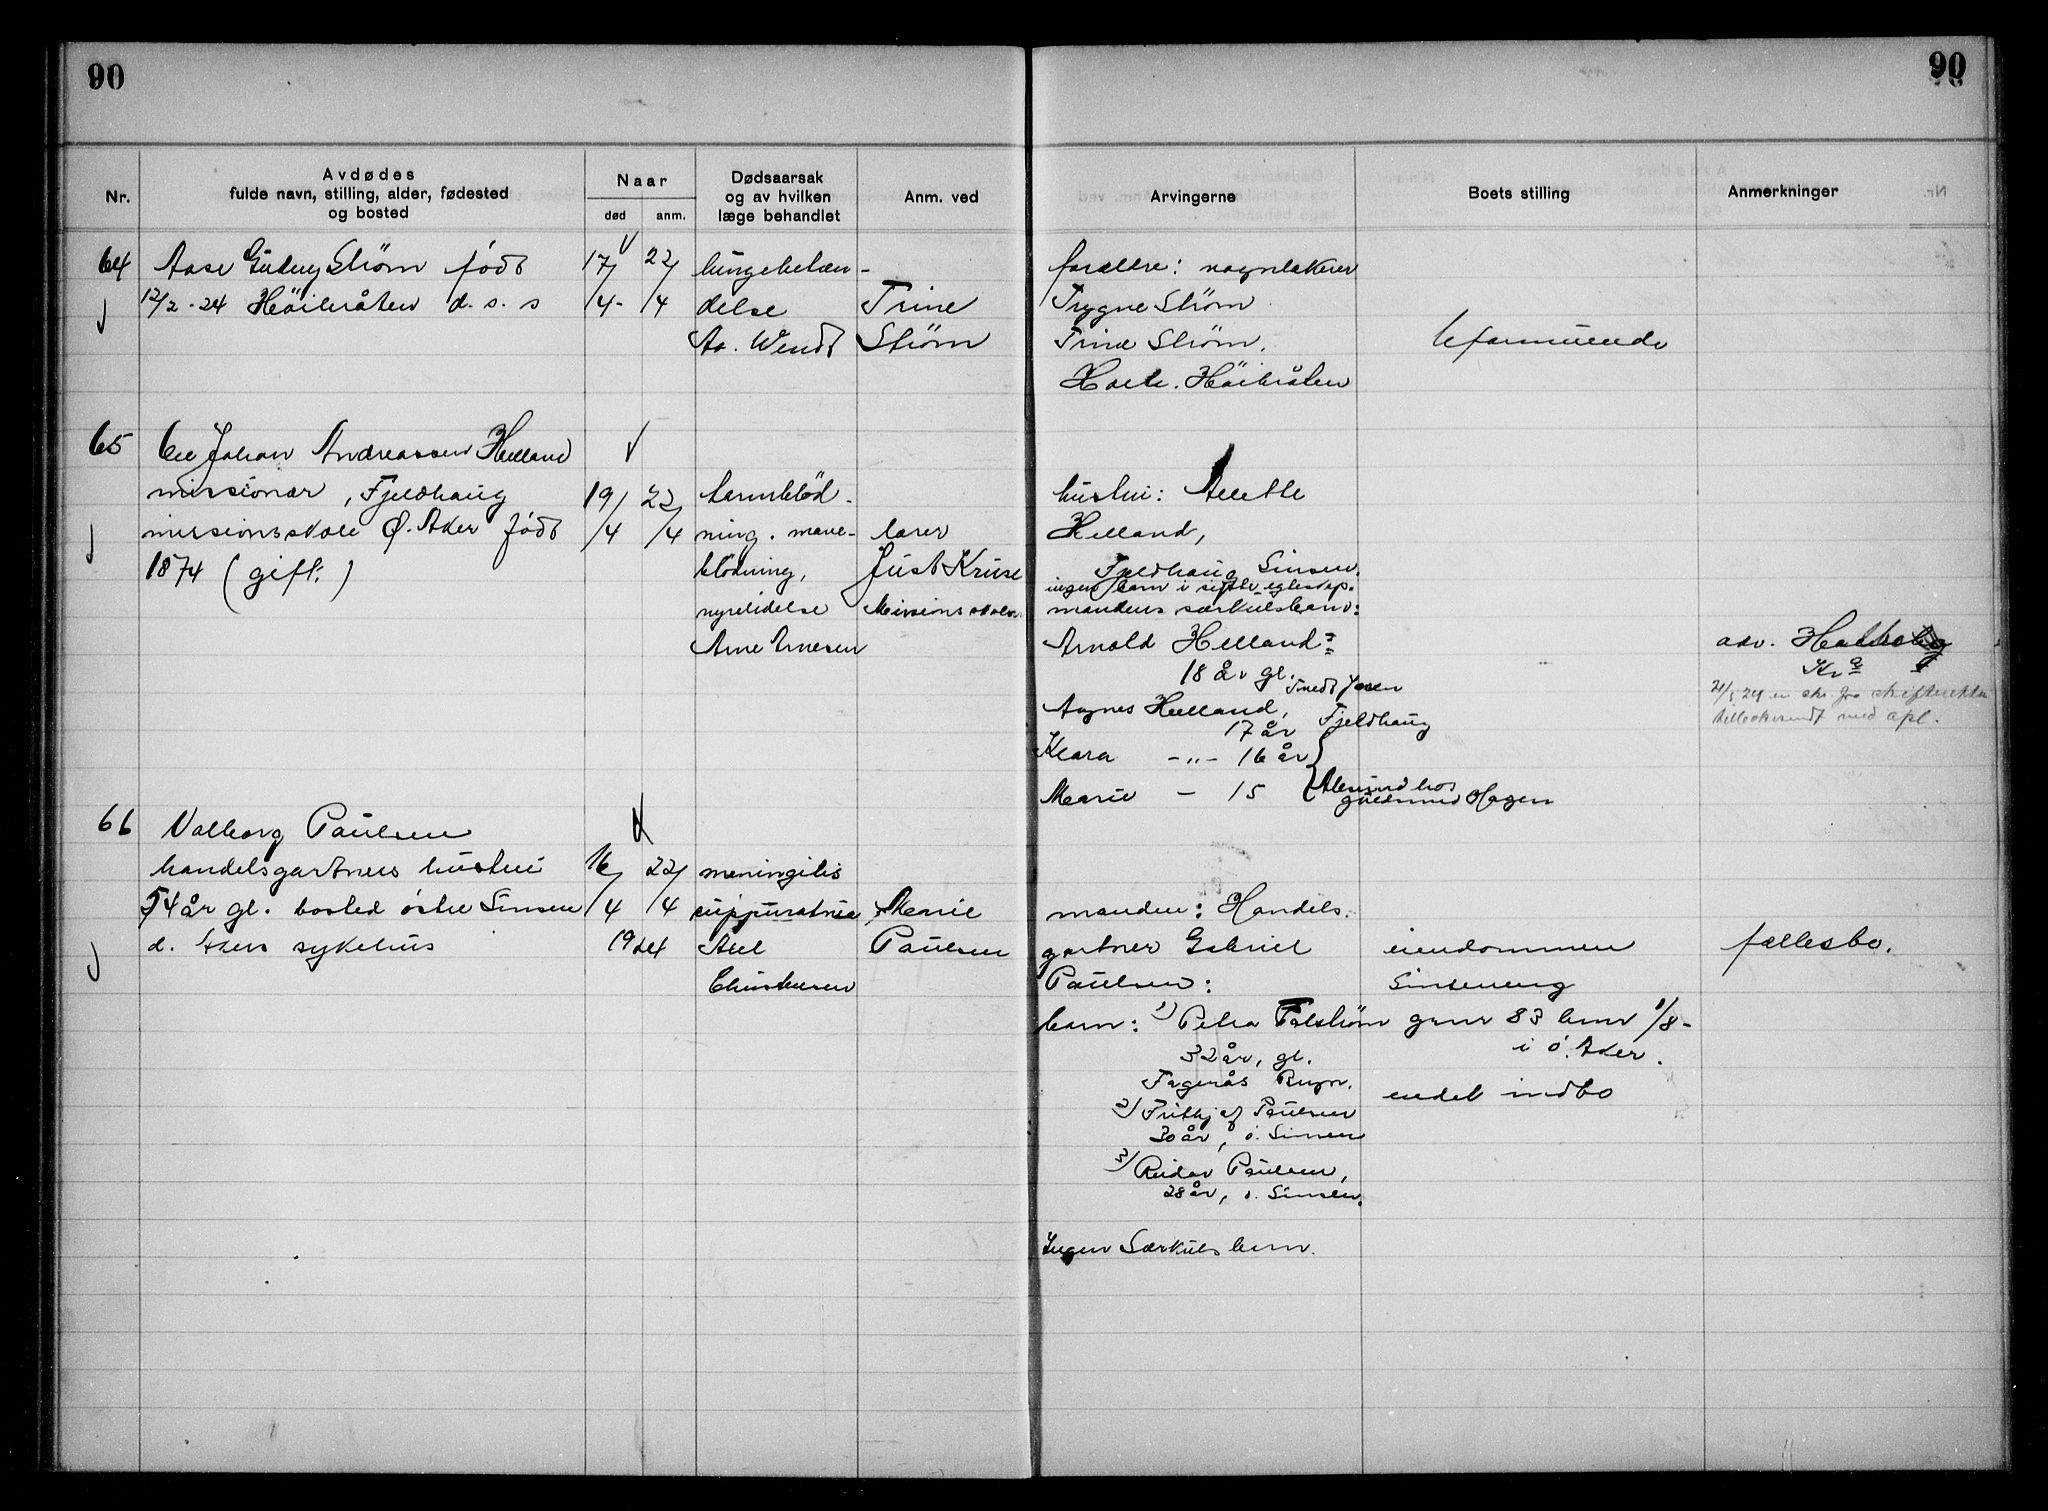 90
90
Nr.
Avdødes
fulde navn, stilling, alder, fødested
og bosted
Naar
død
anm.
Dødsaarsak
og av hvilken
læge behandlet
Anm. ved
Arvingerne
Boets stilling
Anmerkninger
64
Aase Gudny Strøm født
12/2-24 Höibråten d. s. s
17/4- 22/4
lungebetæn-
delse
Aa. Wendt
Trine
Strøm
forældre: vognlakerer
Trygve Strøm
Trine Strøm.
Höibråten
uformuende
65
Johan Andreassen Helland
missionær, Fjeldhaug
missionsskole Ø. Aker født
1874 (gift:)
19/4 22/4
tarmblød-
ning. mave-
blødning,
nyrelidelse
Arne Arnesen
lærer
Just Kruse
Missionsskolen
hustru: Anette
Helland,
Fjeldhaug Sinsen.
ingen barn i sidste egteskap.
mandens særkulsbarn:
Arnold Helland
18 år gl.
Agnes Helland,
17 år Fjeldhaug
Klara -"- 16 år
Marie - 15
guldsmed Hagen
adv.
Kra
21/5 24 er skr. fra skifteretten
tilbakesendt med apl.
66
Valborg Paulsen
handelsgartners hustru
54 år gl. bosted østre Sinsen
d. Akers sykehus
16/4 22/4
1924
meningitis
suppurativa
Axel
Christensen
Marie
Paulsen
manden: Handels.
gartner Gabriel
Paulsen:
barn: 1) Petra Falstrøm
32 år, gl.
Fagerås Rygn.
2) Frithjof Paulsen
30 år, ö. Sinsen
3) Reidar Paulsen,
28 år, ö. Sinsen.
Ingen Særkulsbarn.
eiendommen
Sinseneng
gnr 83 bnr 1/8-
i ö. Aker.
endel indbo
fællesbo.